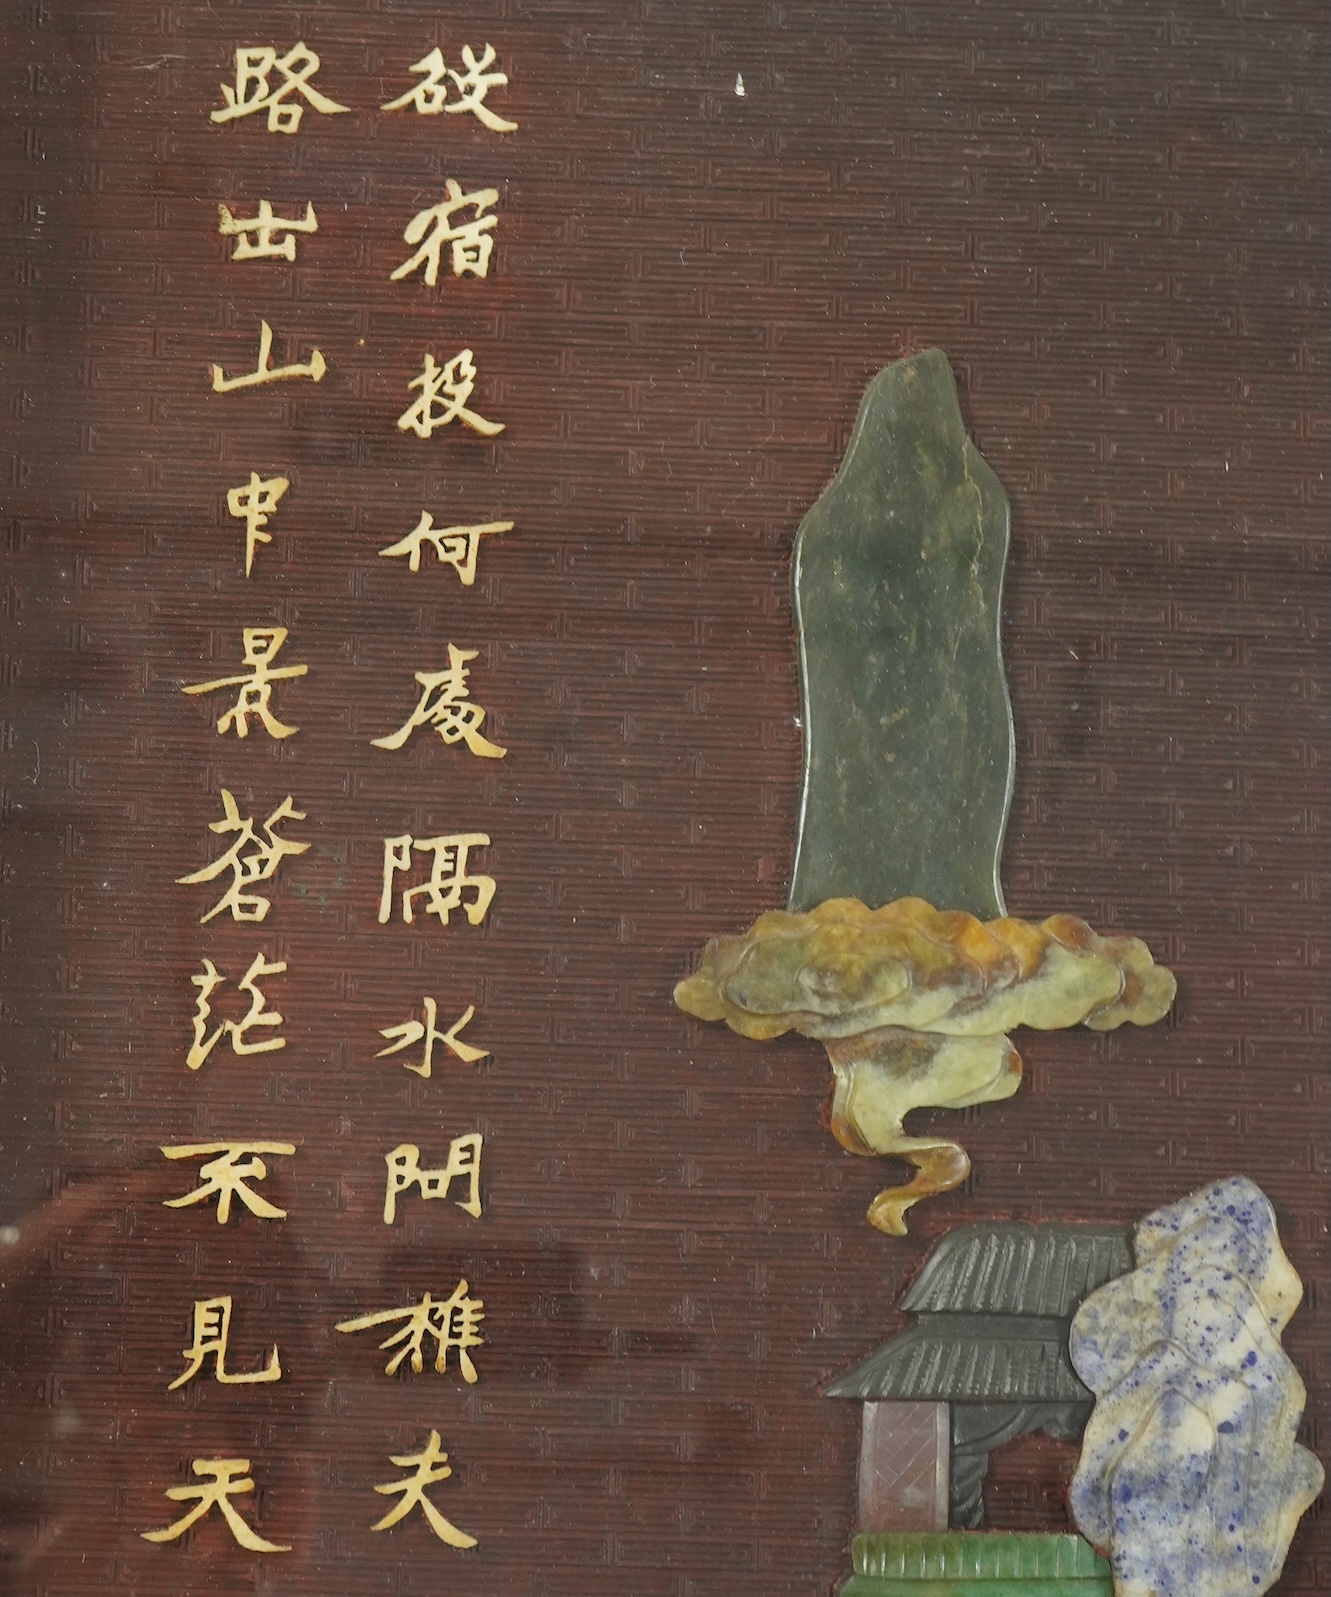 宿投何處隔水問樵夫
路出山中景蒼茫不見天